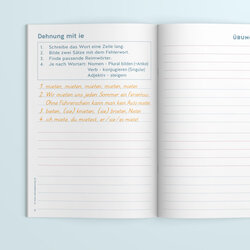 Dehnung mit ie
1. Schreibe das Wort eine Zeile lang.
2. Bilde zwei Sätze mit dem Fehlerwort.
3. Finde passende Reimwörter.
4. Je nach Wortart: Nomen - Plural bilden (-Artikel)
Verb - konjugieren (Singular)
Adjektiv - steigern
1. mieten, mieten, mieten, mieten, mieten
2. Wir mieten uns jeden Sommer ein Ferienhaus.
Ohne Führerschein kann man kein Auto mieten.
3. bieten, (sie) knieten, (sie) brieten, Nieten
4. ich miete, du mietest, er/sie/es mietet
ÜBUN